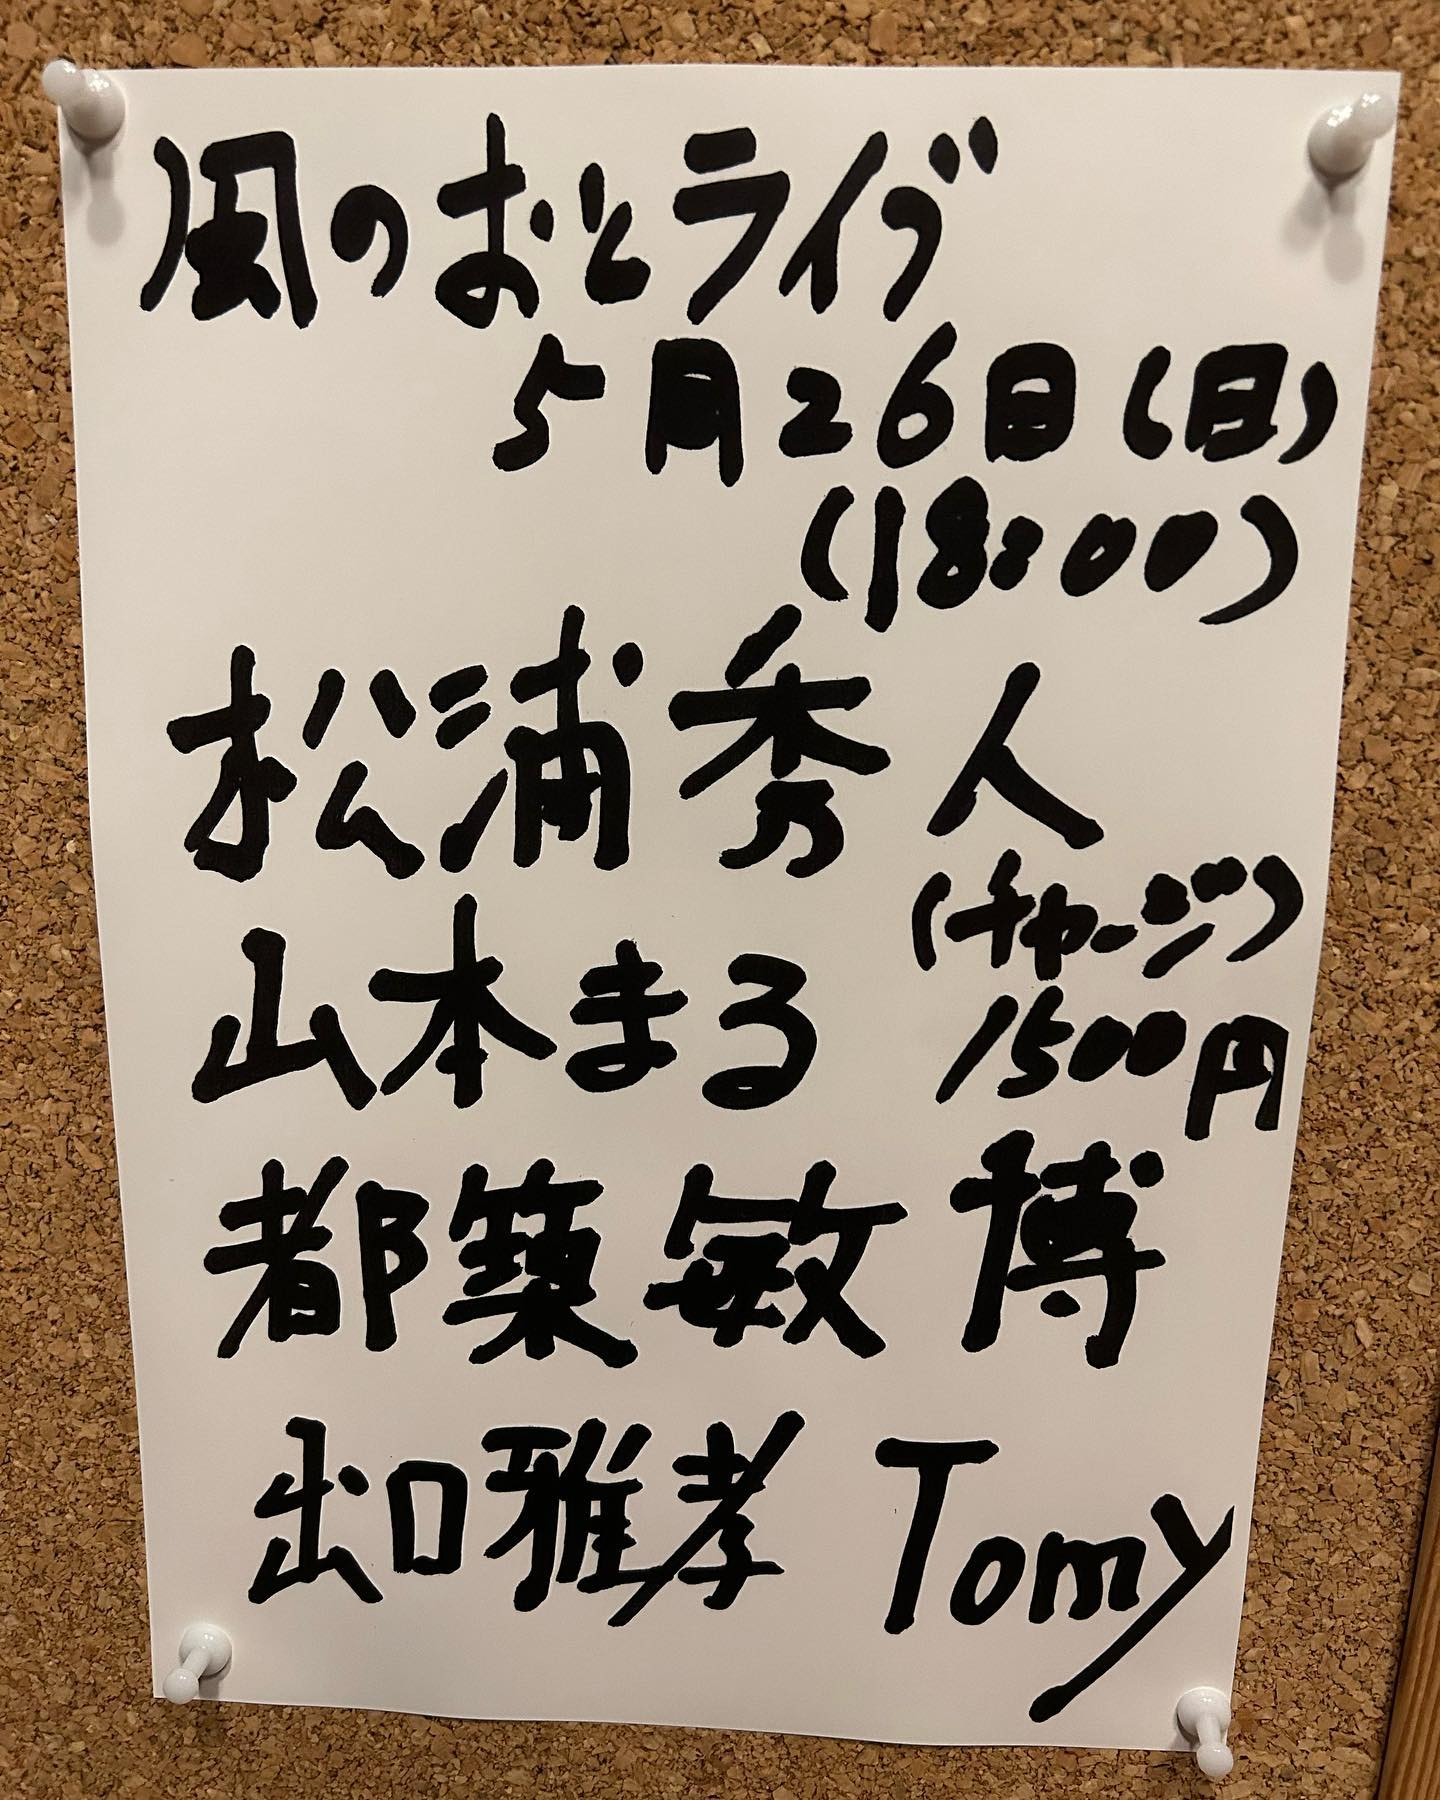 風のおとライブ
5月26日(日)
(18:00)
松浦秀人
(チャージ)
山本まる
1500円
都築敏博
出口雅孝 Tomy